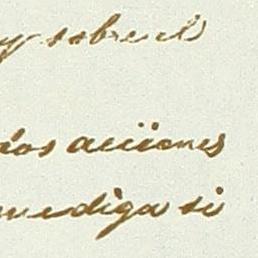 y sobre el
dos acciones
me diga si